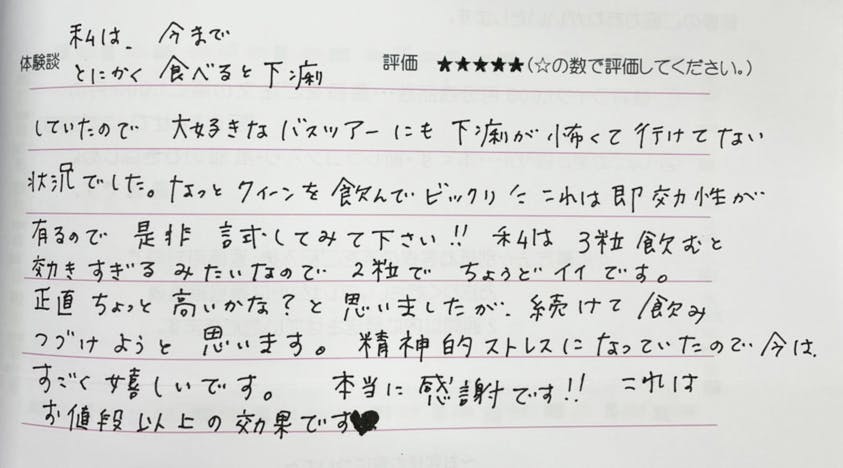 私は、今まで
体験談 とにかく 食べると下痢 評価 ★★★★★(☆の数で評価してください。)
していたので 大好きな バスツアーにも 下痢が 怖くて 行けてない
状況でした。なっとクィーンを 飲んで ビックリ!! これは 即効性が
有るので 是非 試してみて下さい!! 私は 3粒 飲むと
効きすぎる みたいなので 2粒で ちょうどイイです。
正直 ちょっと 高いかな？と 思いましたが、続けて 飲み
つづけようと 思います。 精神的ストレスになっていたので 今は、
すごく嬉しいです。 本当に 感謝です!! これは
お値段以上の 効果です♥